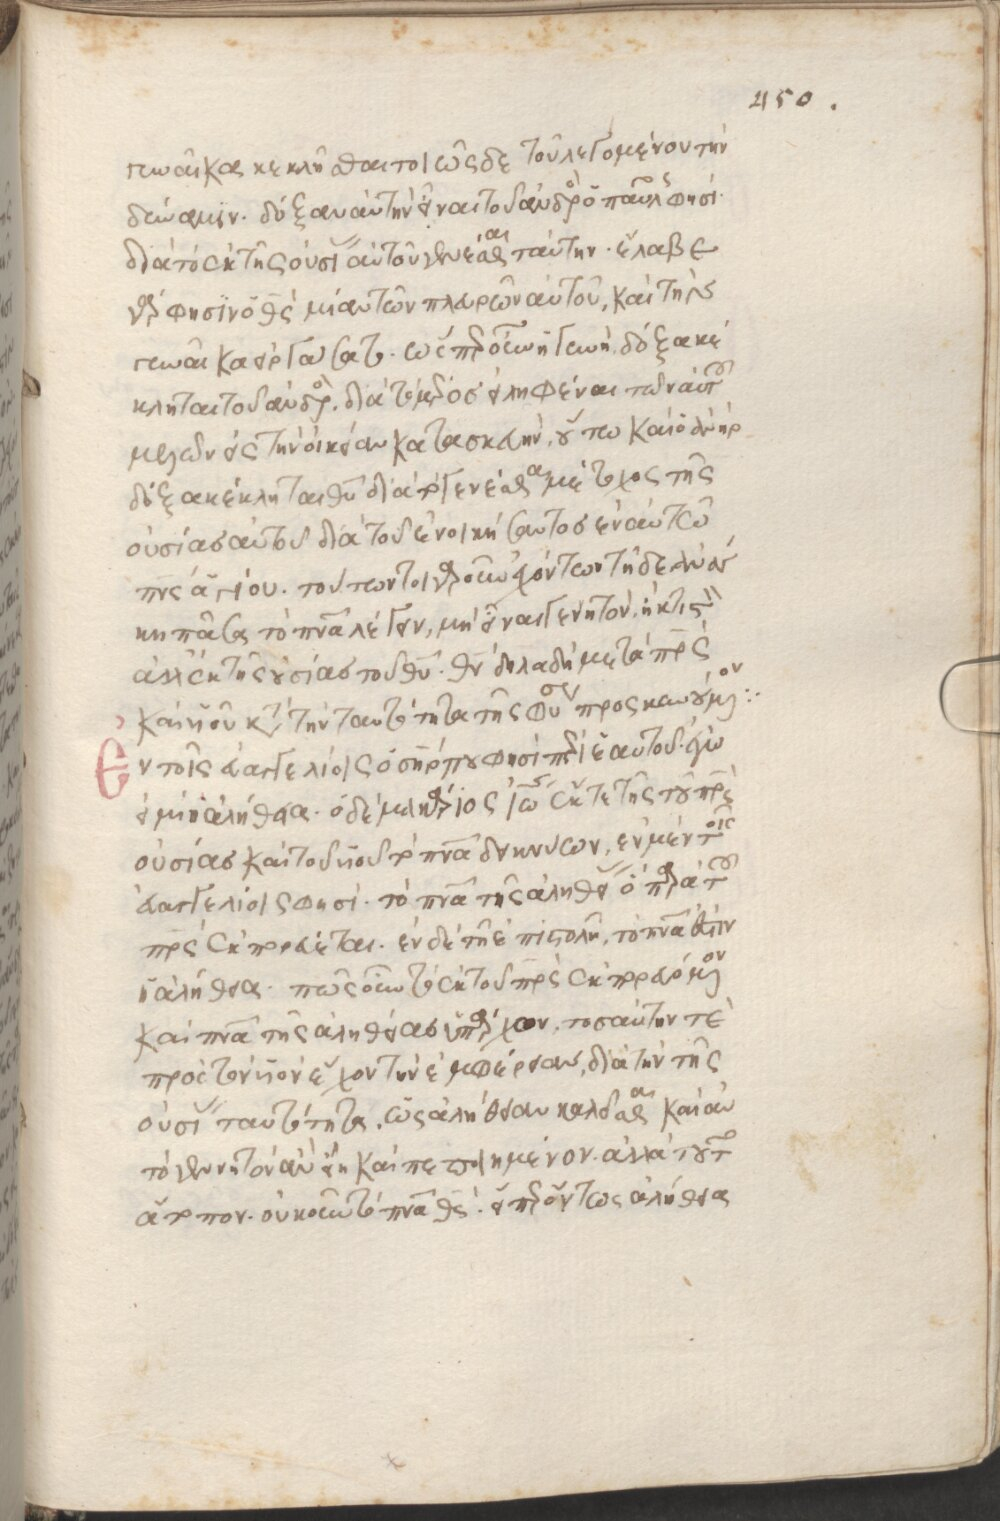 450.
γυναῖκας κεκλῆσθαι τοιῶσδε τοῦ λεγομένου τὴν
δύναμιν. δόξαν αὐτὴν εἶναι τοῦ ἀνδρὸς ὁ παῦλος φησί.
διὰ τὸ ἐκ τῆς οὐσίας αὐτοῦ γενέσθαι ταύτην. ἔλαβε
γάρ φησιν ὁ θς μίαν τῶν πλευρῶν αὐτοῦ, καὶ τὴν
γυναῖκα εἰργάσατο. ὥσπερ οὖν ἡ γυνὴ δόξα κέ
κληται τοῦ ἀνδρὸς. διὰ τὸ μέρος εἰληφέναι τῶν αὐτοῦ
μελῶν εἰς τὴν οἰκείαν κατασκευήν, οὕτω καὶ ὁ ἀνὴρ
δόξα κέκληται θυ διὰ τὸ γενέσθαι μέτοχος τῆς
οὐσίας αὐτοῦ διὰ τοῦ ἐνοικήσαντος ἐν αὐτῷ
πνς ἁγίου. τούτων τοίνυν οὕτως ἐχόντων τῇδε ἀνάγ
κη πᾶσα τὸ πνα λέγειν, μὴ εἶναι γενητὸν ἢ κτιστὸν
ἀλλ' ἐκ τῆς οὐσίας τοῦ θυ. θν δηλαδὴ μετὰ πρς
καὶ υἱοῦ κατὰ τὴν ταυτότητα τῆς φύσεως προσκυνούμενον:
Ἐν τοῖς εὐαγγελίοις ὁ σηρ που φησὶ περὶ ἑαυτοῦ. ἐγώ
εἰμι ἡ ἀλήθεια. ὁ δὲ μακάριος ἰωάννης ἐκ τε τῆς τοῦ πρς
οὐσίας καὶ τοῦ υἱοῦ τὸ πνα δεικνύων, ἐν μὲν τοῖς
εὐαγγελίοις φησί. τὸ πνα τῆς ἀληθείας ὃ παρὰ τοῦ
πρς ἐκπορεύεται. ἐν δὲ τῇ ἐπιστολῇ, τὸ πνα ἐστιν
ἡ ἀλήθεια. πῶς οὖν τὸ ἐκ τοῦ πρς ἐκπορευόμενον
καὶ πνα τῆς ἀληθείας ὑπάρχον, τοσαύτην τε
πρὸς τὸν υἱὸν ἔχον τὴν ἐμφέρειαν, διὰ τὴν τῆς
οὐσίας ταυτότητα, ὡς ἀλήθειαν καλεῖσθαι καὶ αὐ
τὸ γενητὸν ἂν εἴη καὶ πεποιημένον. ἀλλὰ τοῦτο
ἄτοπον. οὐκοῦν τὸ πνα θς. εἴπερ ὄντως ἀλήθεια